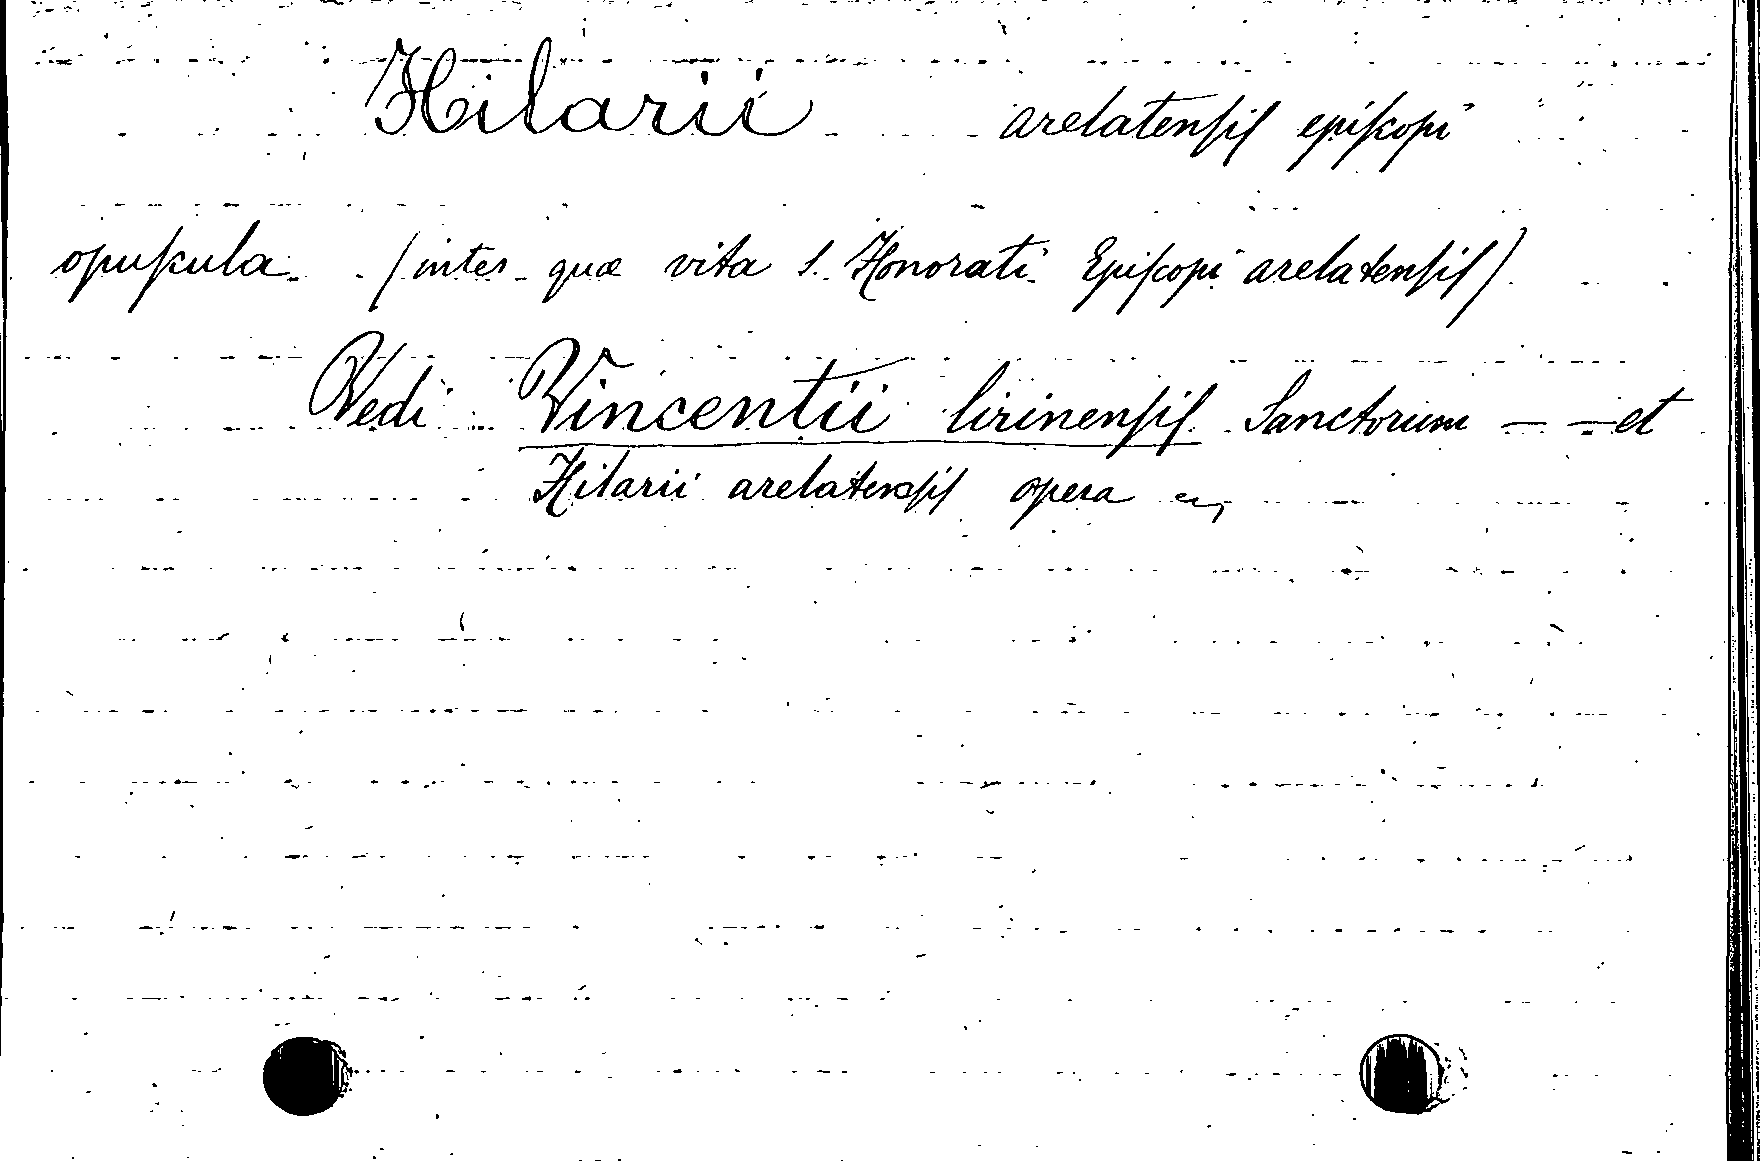 Hilarii arelatensis episcopi
opuscula (inter quæ vita S. Honorati Episcopi arelatensis)
Vedi Vincentii lirinensis Sanctorum — — et
Hilarii arelatensis opera